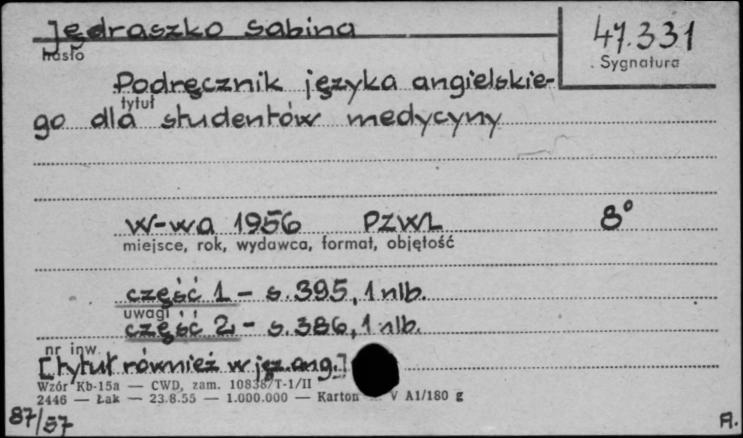 Jędraszko Sabina
47.331
hasło
Sygnatura
Podręcznik języka angielskie-
tytuł
go dla studentów medycyny
W-wa 1956 PZWL 8°
miejsce, rok, wydawca, format, objętość
część 1 - s.395, 1 nlb.
uwagi
część 2 - s.386, 1 nlb.
nr inw.
[tytuł również w jęz. ang.]
Wzór Kb-15a — CWD, zam. 10838/T-1/II
2446 — Łak — 23.8.55 — 1.000.000 — Karton V A1/180 g
87/57
A.